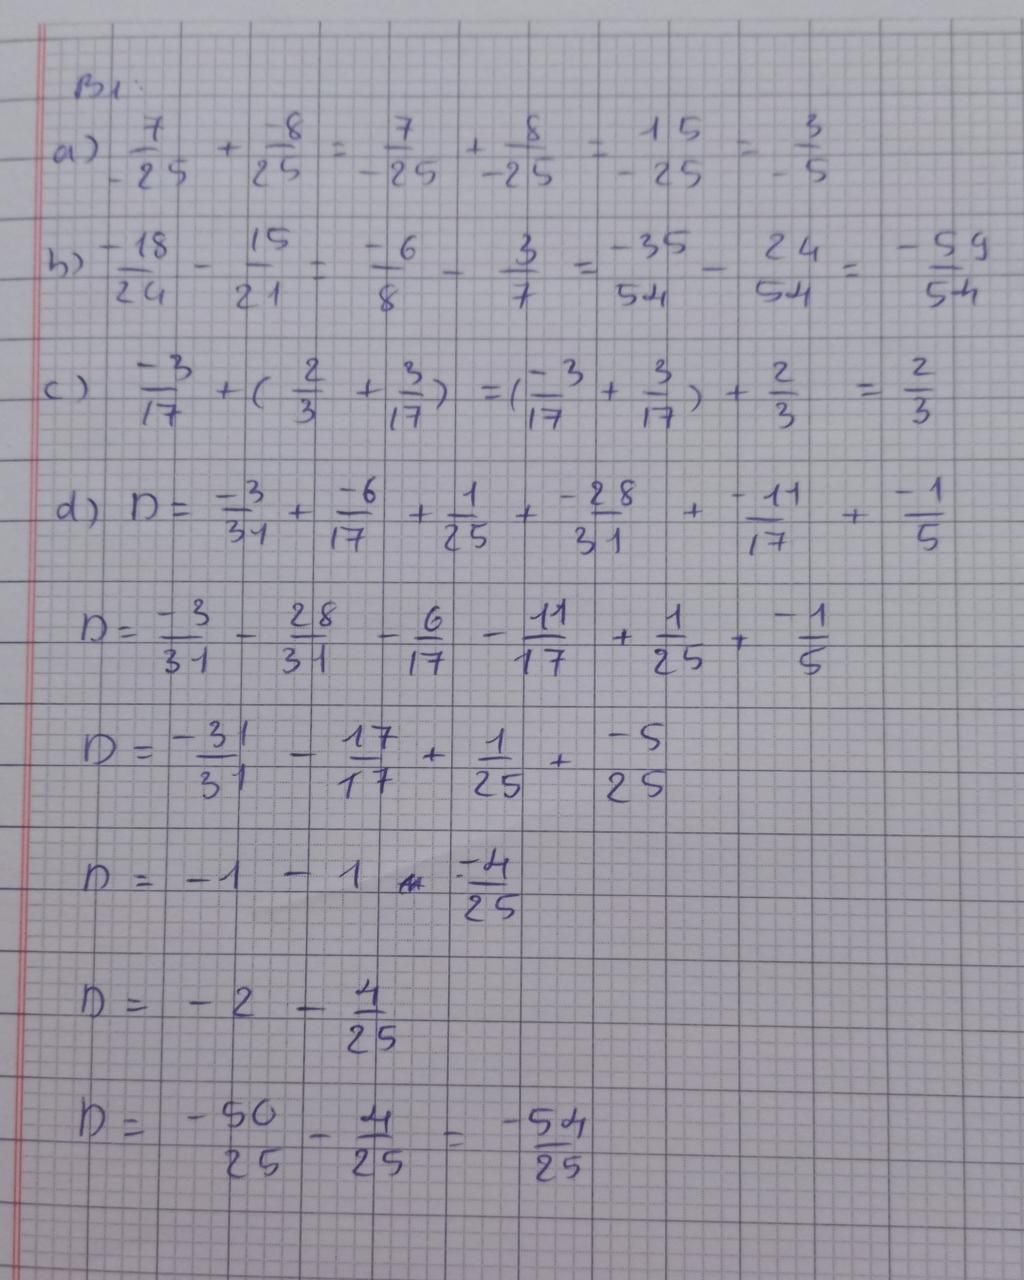 B1.
a) 7/-25 + -8/25 = 7/-25 + 8/-25 = 15/-25 = 3/-5
b) -18/24 - 15/21 = -6/8 - 3/7 = -35/54 - 24/54 = -59/54
c) -3/17 + ( 2/3 + 3/17 ) = ( -3/17 + 3/17 ) + 2/3 = 2/3
d) D = -3/31 + -6/17 + 1/25 + -28/31 + -11/17 + -1/5
D = -3/31 - 28/31 - 6/17 - 11/17 + 1/25 + -1/5
D = -31/31 - 17/17 + 1/25 + -5/25
D = -1 - 1 -4/25
D = -2 - 4/25
D = -50/25 - 4/25 = -54/25